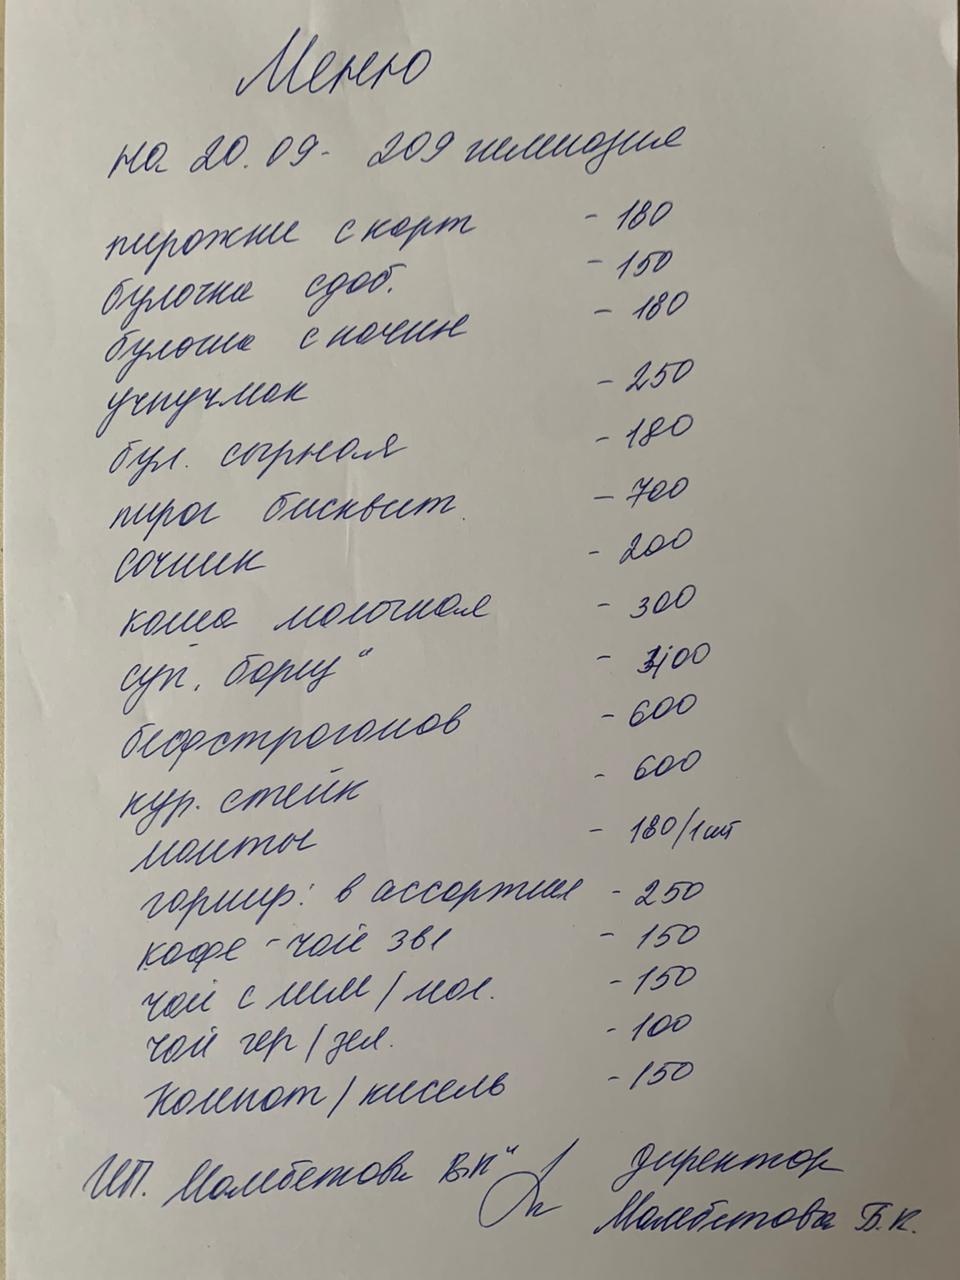 Меню
на 20.09- 209 гимназия
пирожки с карт - 180
булочка сдоб. - 150
булочка с начин - 180
учпучмак - 250
бул. сырная - 180
пирог бисквит. - 700
сочник - 200
каша молочная - 300
суп „борщ" - 400
бефстрогонов - 600
кур. стейк - 600
манты - 180/1шт
гарнир: в ассортим - 250
кофе - чай 3в1 - 150
чай с лим / мол. - 150
чай чер / зел. - 100
Компот / кисель - 150
ИП. Мамбетова Б.К" директор
Мамбетова Б.К.